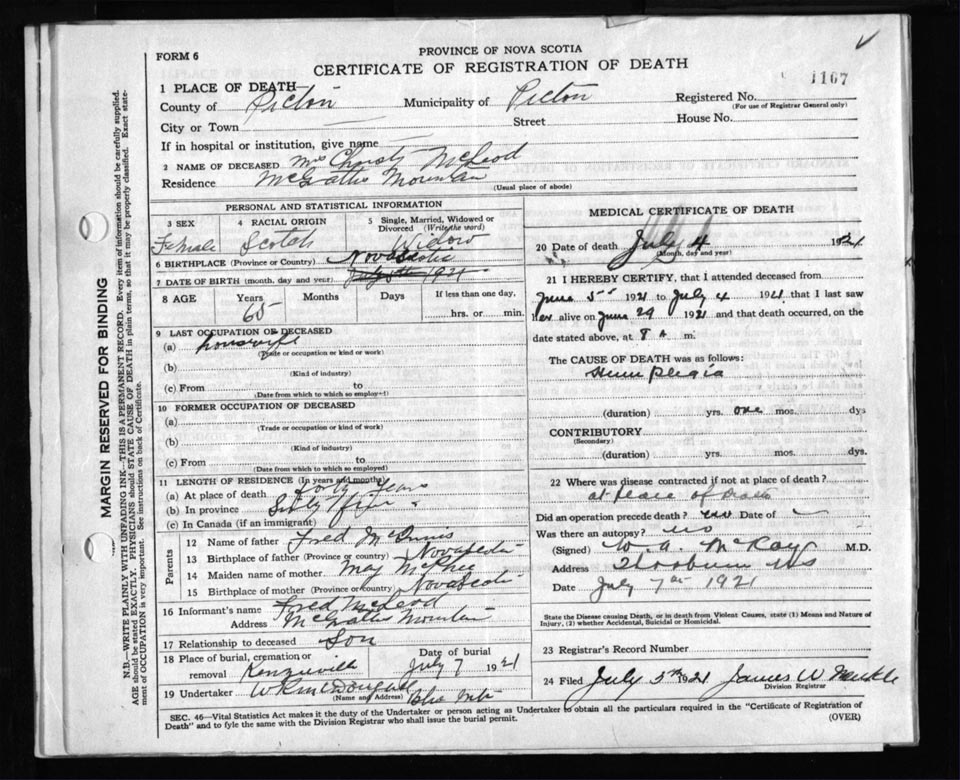 PROVINCE OF NOVA SCOTIA
FORM 6
CERTIFICATE OF REGISTRATION OF DEATH
1167
1 PLACE OF DEATH
County of Pictou Municipality of Pictou Registered No.
(For use of Registrar General only)
City or Town Street House No.
If in hospital or institution, give name
2 NAME OF DECEASED Mrs Christy McLeod
Residence McGraths Mountain
(Usual place of abode)
PERSONAL AND STATISTICAL INFORMATION
3 SEX 4 RACIAL ORIGIN 5 Single, Married, Widowed or Divorced (Write the word)
Female Scotch Widow
6 BIRTHPLACE (Province or Country) Nova Scotia
7 DATE OF BIRTH (month, day and year) 1921
8 AGE Years Months Days If less than one day,
65 hrs. or min.
9 LAST OCCUPATION OF DECEASED
(a) housewife
(Trade or occupation or kind or work)
(b)
(Kind of industry)
(c) From to
(Date from which to which so employed)
10 FORMER OCCUPATION OF DECEASED
(a)
(Trade or occupation or kind of work)
(b)
(Kind of industry)
(c) From to
(Date from which to which so employed)
11 LENGTH OF RESIDENCE (In years and months)
(a) At place of death forty years
(b) In province Sixty five "
(c) In Canada (if an immigrant)
Parents
12 Name of father Fred McInnis
13 Birthplace of father (Province or country) Nova Scotia
14 Maiden name of mother May McPhee
15 Birthplace of mother (Province or country) Nova Scotia
16 Informant's name Fred McLeod
Address McGraths Mountain
17 Relationship to deceased Son
18 Place of burial, cremation or removal Date of burial
July 7 1921
19 Undertaker
(Name and Address)
MEDICAL CERTIFICATE OF DEATH
20 Date of death July 4 1921
(Month, day and year)
21 I HEREBY CERTIFY, that I attended deceased from
June 5 1921 to July 4 1921, that I last saw
her alive on June 29 1921 and that death occurred, on the
date stated above, at 8 A m.
The CAUSE OF DEATH was as follows:
Hemiplegia
(duration) yrs. one mos. dys
CONTRIBUTORY
(Secondary)
(duration) yrs. mos. dys.
22 Where was disease contracted if not at place of death?
at place of death
Did an operation precede death? no Date of
Was there an autopsy? no
(Signed) W. A. McKay M.D.
Address Thorburn NS
Date July 7th 1921
State the Disease causing Death, or in death from Violent Causes, state (1) Means and Nature of
Injury, (2) whether Accidental, Suicidal or Homicidal.
23 Registrar's Record Number
24 Filed July 5th 1921 James W
Division Registrar
SEC. 46—Vital Statistics Act makes it the duty of the Undertaker or person acting as Undertaker to obtain all the particulars required in the "Certificate of Registration of
Death" and to fyle the same with the Division Registrar who shall issue the burial permit. (OVER)
MARGIN RESERVED FOR BINDING
N.B.—WRITE PLAINLY WITH UNFADING INK—THIS IS A PERMANENT RECORD. Every item of information should be carefully supplied.
AGE should be stated EXACTLY. PHYSICIANS should STATE CAUSE OF DEATH in plain terms, so that it may be properly classified. Exact state-
ment of OCCUPATION is very important. See instructions on back of Certificate.